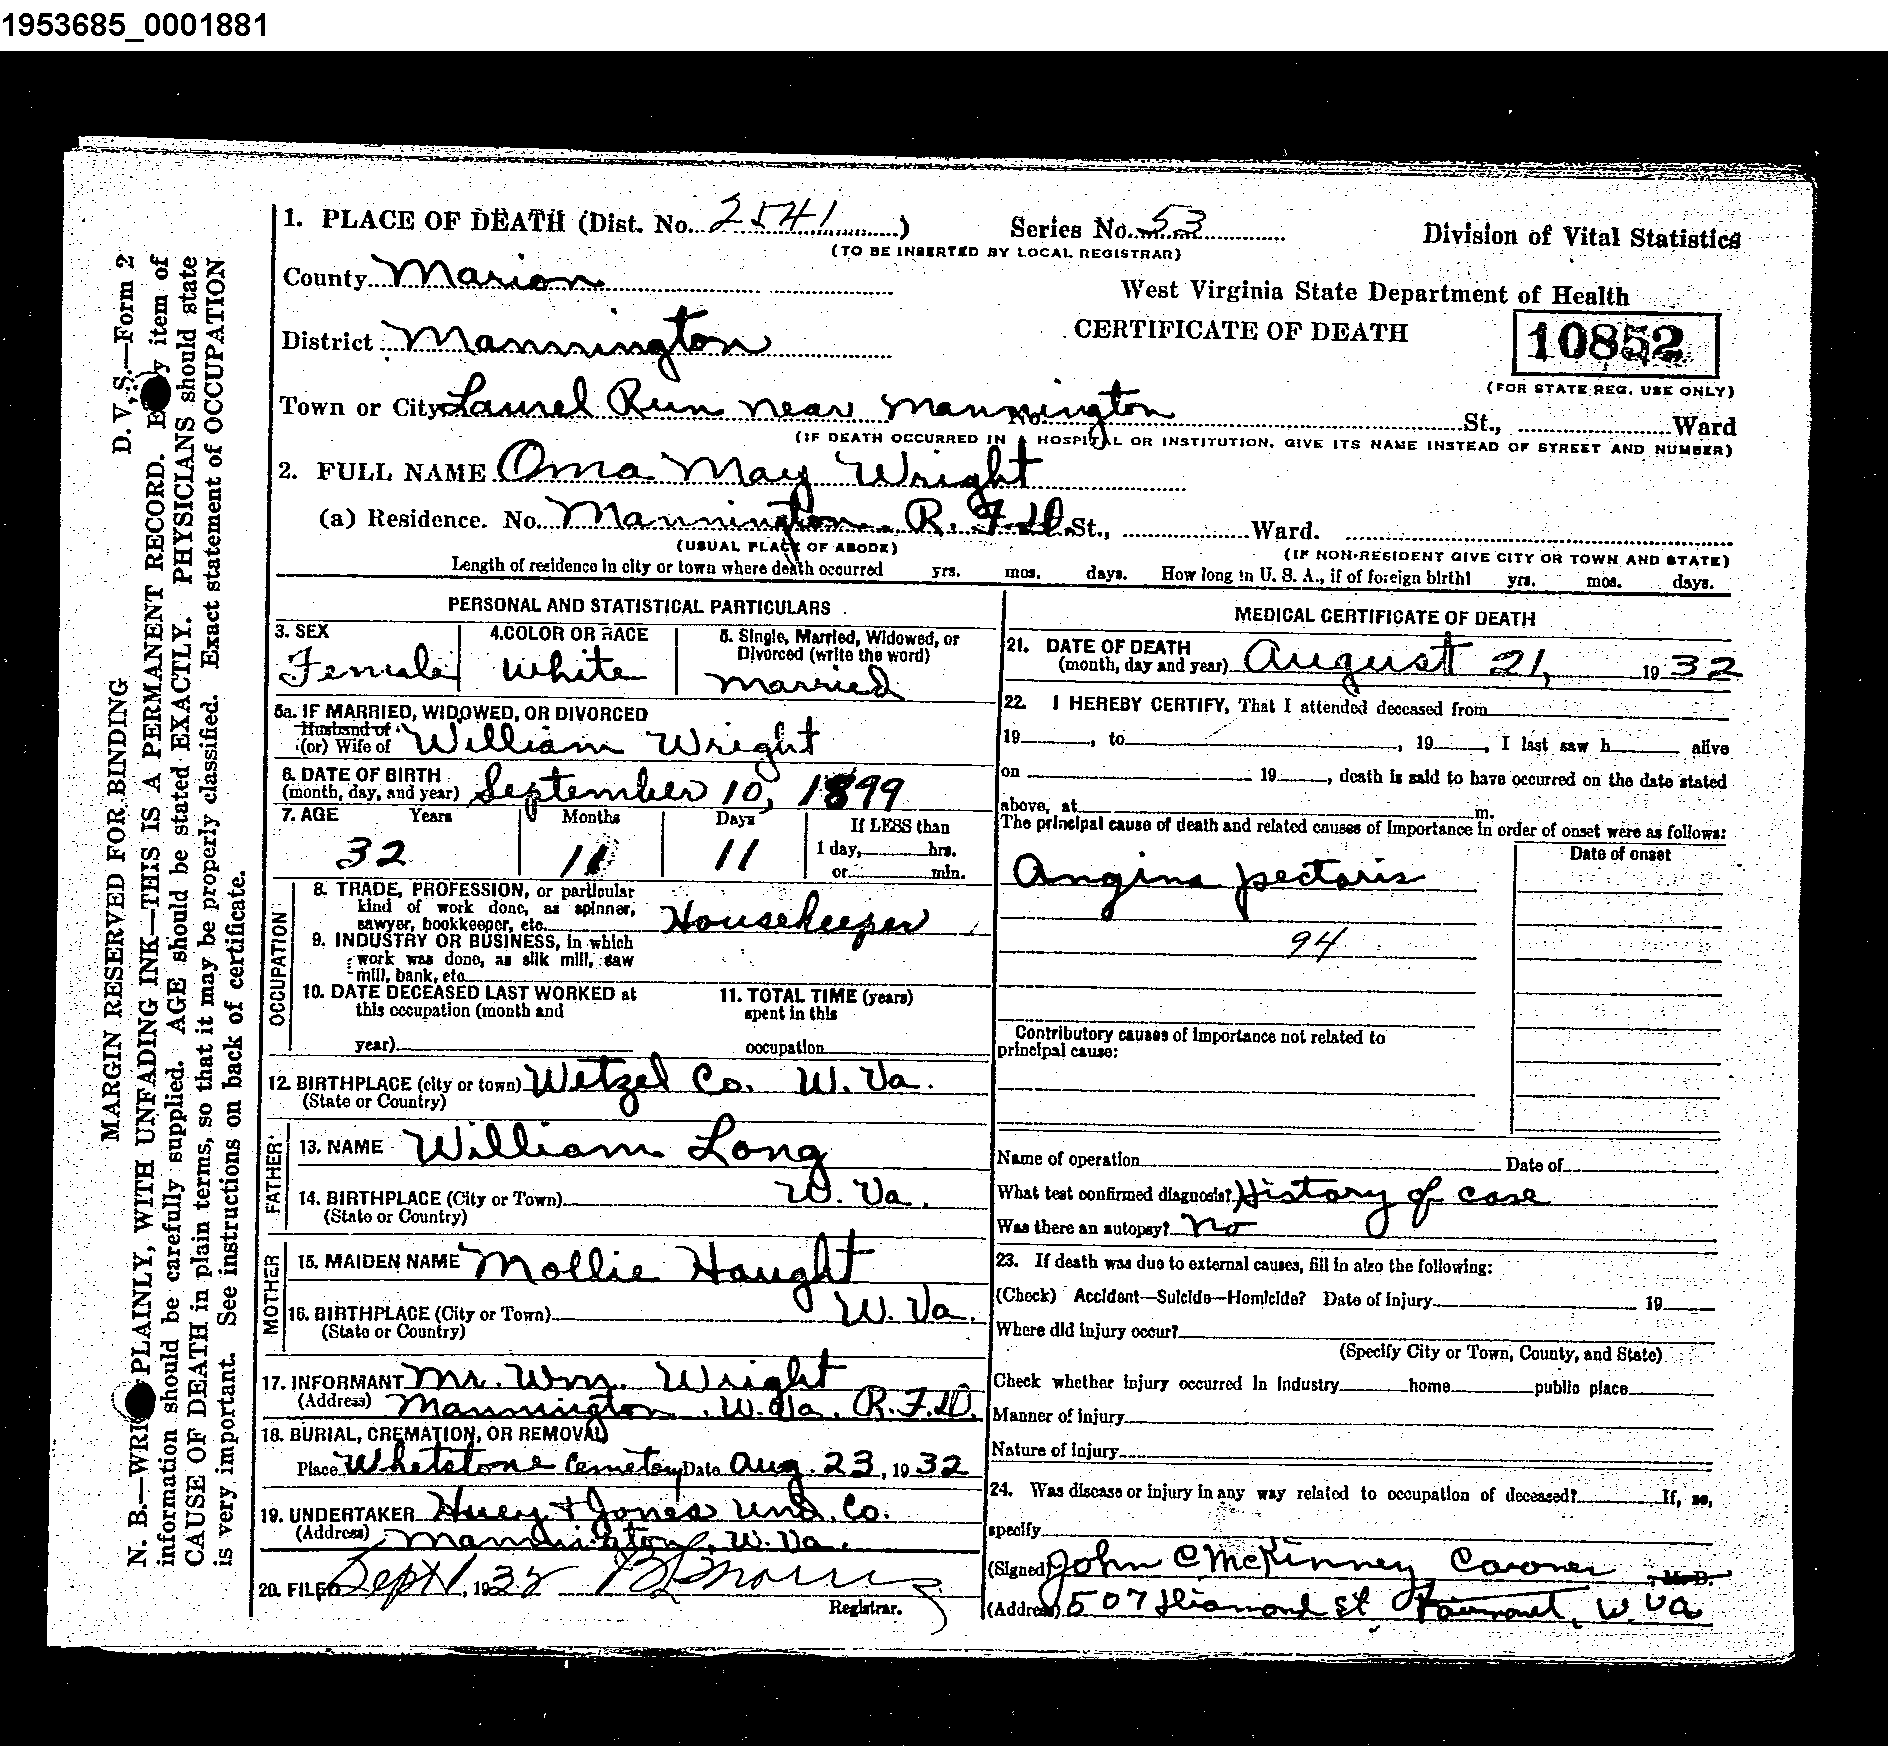 1953685_0001881
1. PLACE OF DEATH (Dist. No. 2541) Series No. 53 Division of Vital Statistics
(TO BE INSERTED BY LOCAL REGISTRAR)
County Marion West Virginia State Department of Health
District Mannington CERTIFICATE OF DEATH 10852
(FOR STATE REG. USE ONLY)
Town or City Laurel Run near Mannington No. St., Ward
(IF DEATH OCCURRED IN A HOSPITAL OR INSTITUTION, GIVE ITS NAME INSTEAD OF STREET AND NUMBER)
2. FULL NAME Oma May Wright
(a) Residence. No. Mannington R.F.D. St., Ward.
(USUAL PLACE OF ABODE) (IF NON-RESIDENT GIVE CITY OR TOWN AND STATE)
Length of residence in city or town where death occurred yrs. mos. days. How long in U. S. A., if of foreign birth? yrs. mos. days.
PERSONAL AND STATISTICAL PARTICULARS
3. SEX 4. COLOR OR RACE 5. Single, Married, Widowed, or
Divorced (write the word)
Female White Married
5a. IF MARRIED, WIDOWED, OR DIVORCED
Husband of
(or) Wife of William Wright
6. DATE OF BIRTH
(month, day, and year) September 10, 1899
7. AGE Years Months Days If LESS than
1 day, hrs.
or min.
32 11 11
OCCUPATION
8. TRADE, PROFESSION, or particular
kind of work done, as spinner,
sawyer, bookkeeper, etc. Housekeeper
9. INDUSTRY OR BUSINESS, in which
work was done, as silk mill, saw
mill, bank, etc.
10. DATE DECEASED LAST WORKED at
this occupation (month and
year)
11. TOTAL TIME (years)
spent in this
occupation
12. BIRTHPLACE (city or town) Wetzel Co. W. Va.
(State or Country)
FATHER
13. NAME William Long
14. BIRTHPLACE (City or Town) W. Va.
(State or Country)
MOTHER
15. MAIDEN NAME Mollie Haught
16. BIRTHPLACE (City or Town) W. Va.
(State or Country)
17. INFORMANT Mr. Wm. Wright
(Address) Mannington, W. Va. R.F.D.
18. BURIAL, CREMATION, OR REMOVAL
Place Whetstone Cemetery Date Aug. 23, 1932
19. UNDERTAKER Huey & Jones Und. Co.
(Address) Mannington, W. Va.
20. FILED Sept 1, 1932
Registrar.
MEDICAL CERTIFICATE OF DEATH
21. DATE OF DEATH
(month, day and year) August 21, 1932
22. I HEREBY CERTIFY, That I attended deceased from
19 , to , 19 , I last saw h alive
on 19 , death is said to have occurred on the date stated
above, at m.
The principal cause of death and related causes of importance in order of onset were as follows:
Date of onset
Angina pectoris
94
Contributory causes of importance not related to
principal cause:
Name of operation Date of
What test confirmed diagnosis? History of case
Was there an autopsy? No
23. If death was due to external causes, fill in also the following:
(Check) Accident—Suicide—Homicide? Date of injury 19
Where did injury occur?
(Specify City or Town, County, and State)
Check whether injury occurred in industry home public place
Manner of injury
Nature of injury
24. Was disease or injury in any way related to occupation of deceased? If, so,
specify
(Signed) John C McKinney Coroner M. D.
(Address) 507 Diamond St Fairmont, W. Va
D. V. S.—Form 2
MARGIN RESERVED FOR BINDING
N. B.—WRITE PLAINLY, WITH UNFADING INK—THIS IS A PERMANENT RECORD. Every item of
information should be carefully supplied. AGE should be stated EXACTLY. PHYSICIANS should state
CAUSE OF DEATH in plain terms, so that it may be properly classified. Exact statement of OCCUPATION
is very important. See instructions on back of certificate.